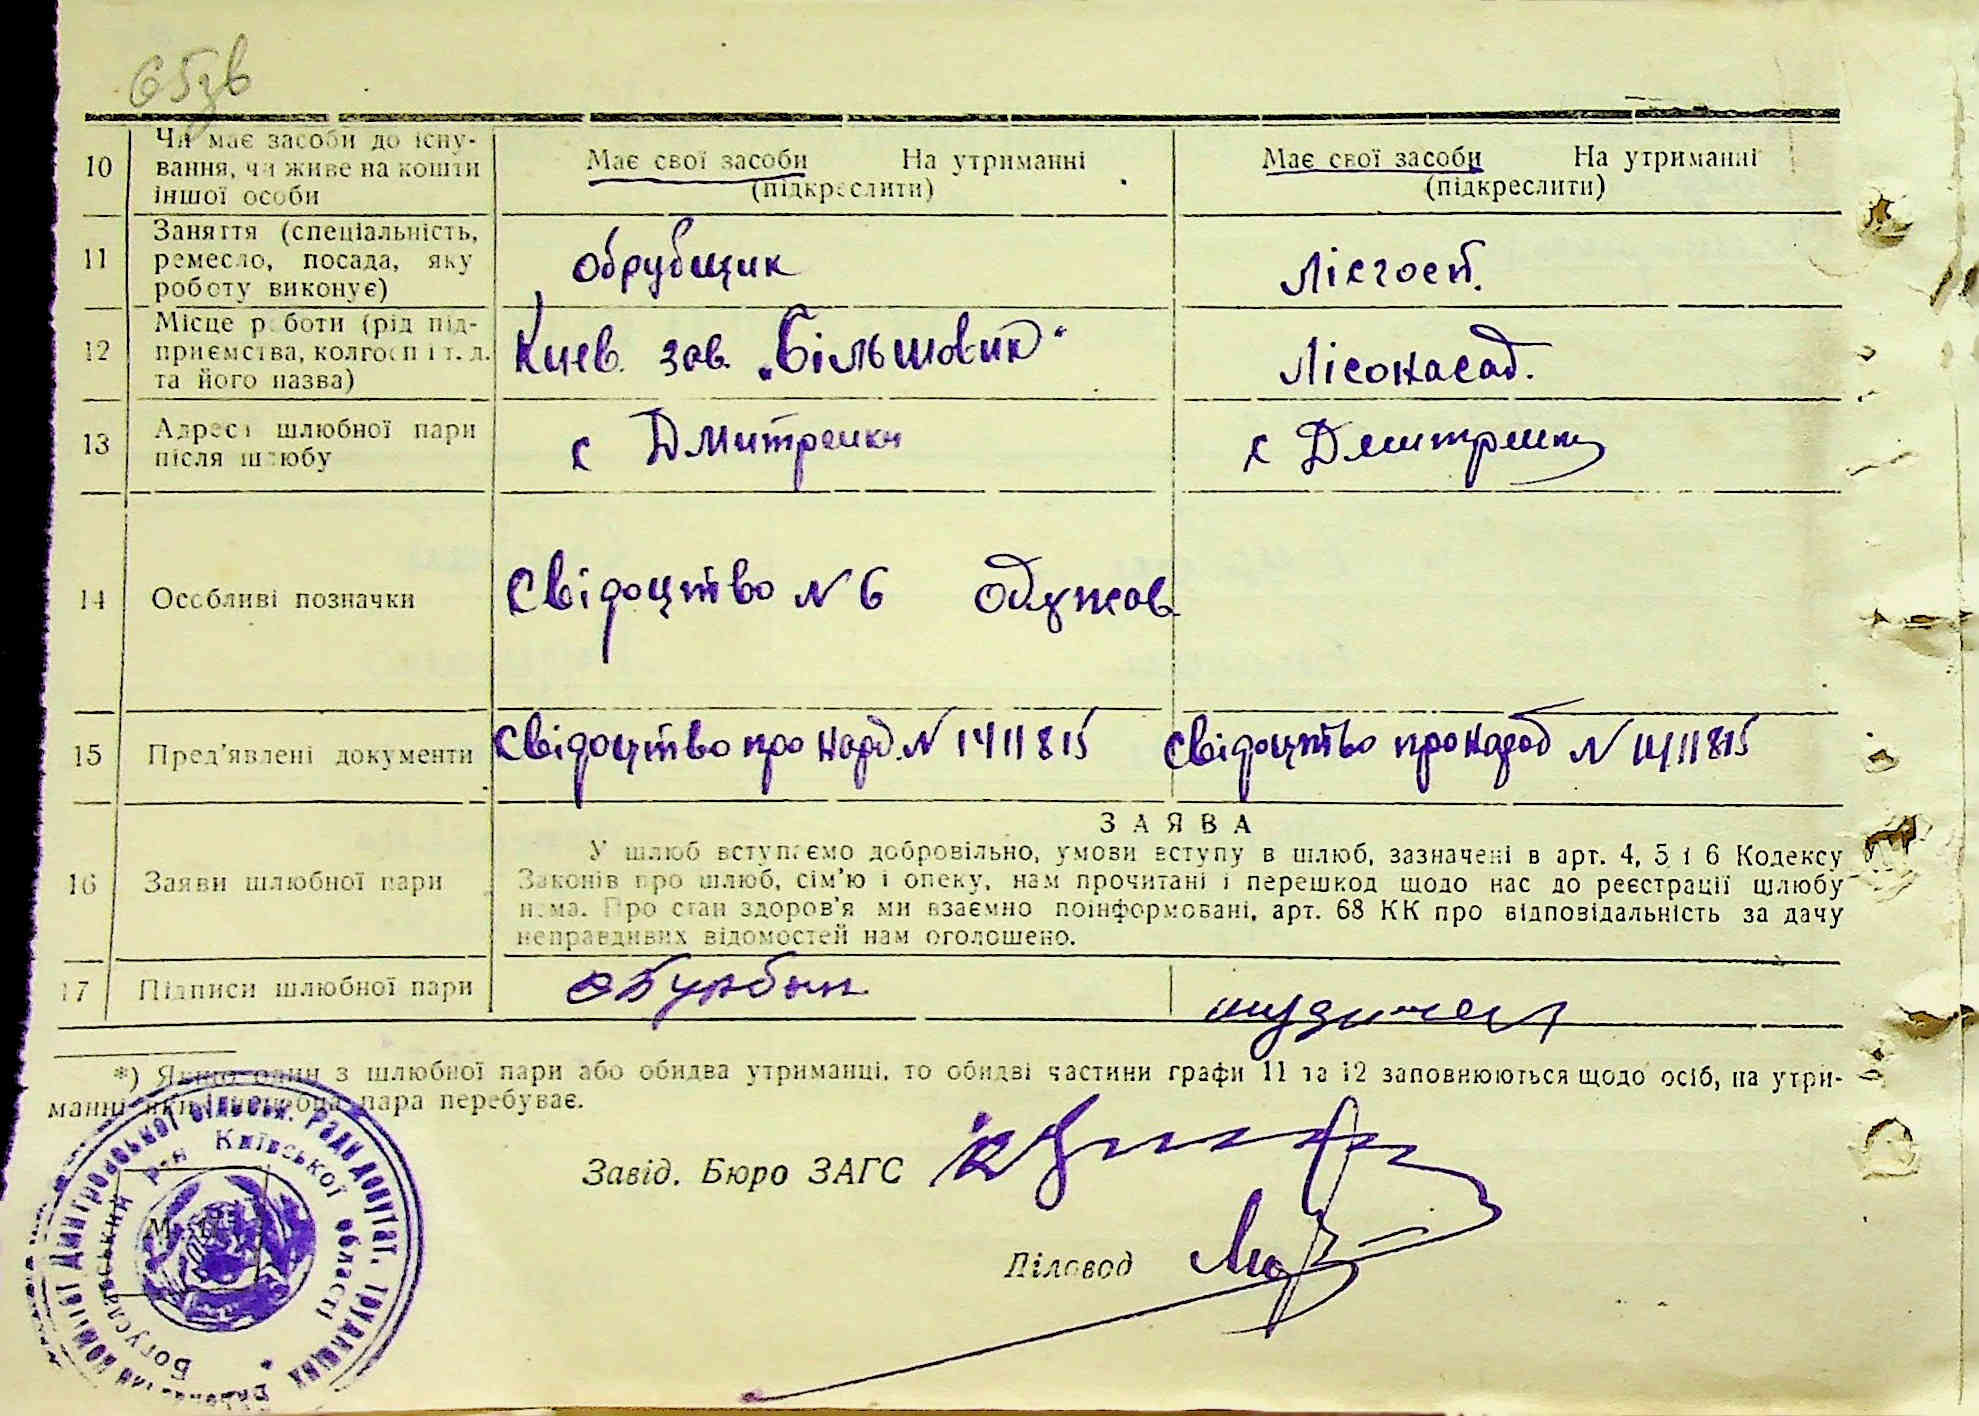 65зв
10 Чи має засоби до існу-
вання, чи живе на кошти
іншої особи
Має свої засоби На утриманні
(підкреслити)
Має свої засоби На утриманні
(підкреслити)
11 Заняття (спеціальність,
ремесло, посада, яку
роботу виконує)
Обрубщик
Лісгосп.
12 Місце роботи (рід під-
приємства, колгосп і т. д.
та його назва)
Киев. зав. „Більшовик"
Лісонасад.
13 Адреса шлюбної пари
після шлюбу
с Дмитренки
с Дмитренки
14 Особливі позначки
Свідоцтво N 6
15 Пред'явлені документи
Свідоцтво про нард. N 1411815
Свідоцтво про народ N 1411815
16 Заяви шлюбної пари
ЗАЯВА
У шлюб вступаємо добровільно, умови вступу в шлюб, зазначені в арт. 4, 5 і 6 Кодексу
Законів про шлюб, сім'ю і опеку, нам прочитані і перешкод щодо нас до реєстрації шлюбу
нема. Про стан здоров'я ми взаємно поінформовані, арт. 68 КК про відповідальність за дачу
неправдивих відомостей нам оголошено.
17 Підписи шлюбної пари
*) Якщо один з шлюбної пари або обидва утриманці, то обидві частини графи 11 та 12 заповнюються щодо осіб, на утри-
манні яких шлюбна пара перебуває.
Завід. Бюро ЗАГС
Діловод
М. П.
Виконавчий комітет Дмитровської сільськ. Ради депутат. трудящих
Богуславський р-н Київської області